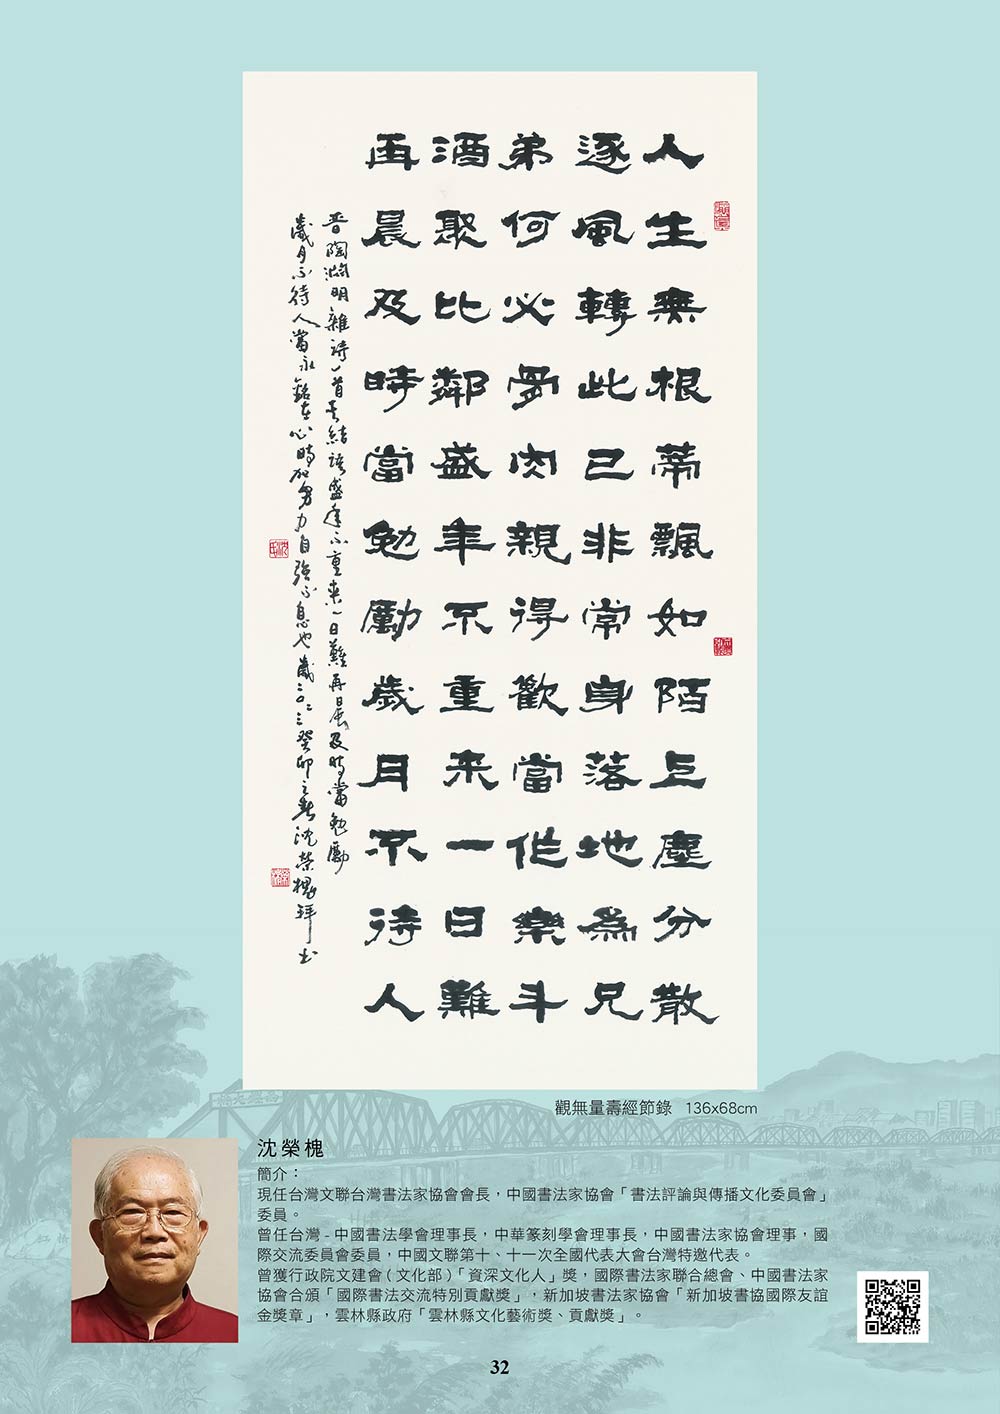 人生無根蒂飄如陌上塵分散
逐風轉此已非常身落地為兄
弟何必骨肉親得歡當作樂斗
酒聚比鄰盛年不重来一日難
再晨及時當勉勵歲月不待人
晉陶淵明雜詩一首其結語盛年不重来一日難再晨及時當勉勵
歲月不待人當永銘在心時努力自強不息也歲二〇二三癸卯之春沈榮槐拜书
觀無量壽經節錄 136x68cm
沈榮槐
簡介：
現任台灣文聯台灣書法家協會會長，中國書法家協會「書法評論與傳播文化委員會」
委員。
曾任台灣 - 中國書法學會理事長，中華篆刻學會理事長，中國書法家協會理事，國
際交流委員會委員，中國文聯第十、十一次全國代表大會台灣特邀代表。
曾獲行政院文建會 ( 文化部 )「資深文化人」獎，國際書法家聯合總會、中國書法家
協會合頒「國際書法交流特別貢獻獎」，新加坡書法家協會「新加坡書協國際友誼
金獎章」，雲林縣政府「雲林縣文化藝術獎、貢獻獎」。
32